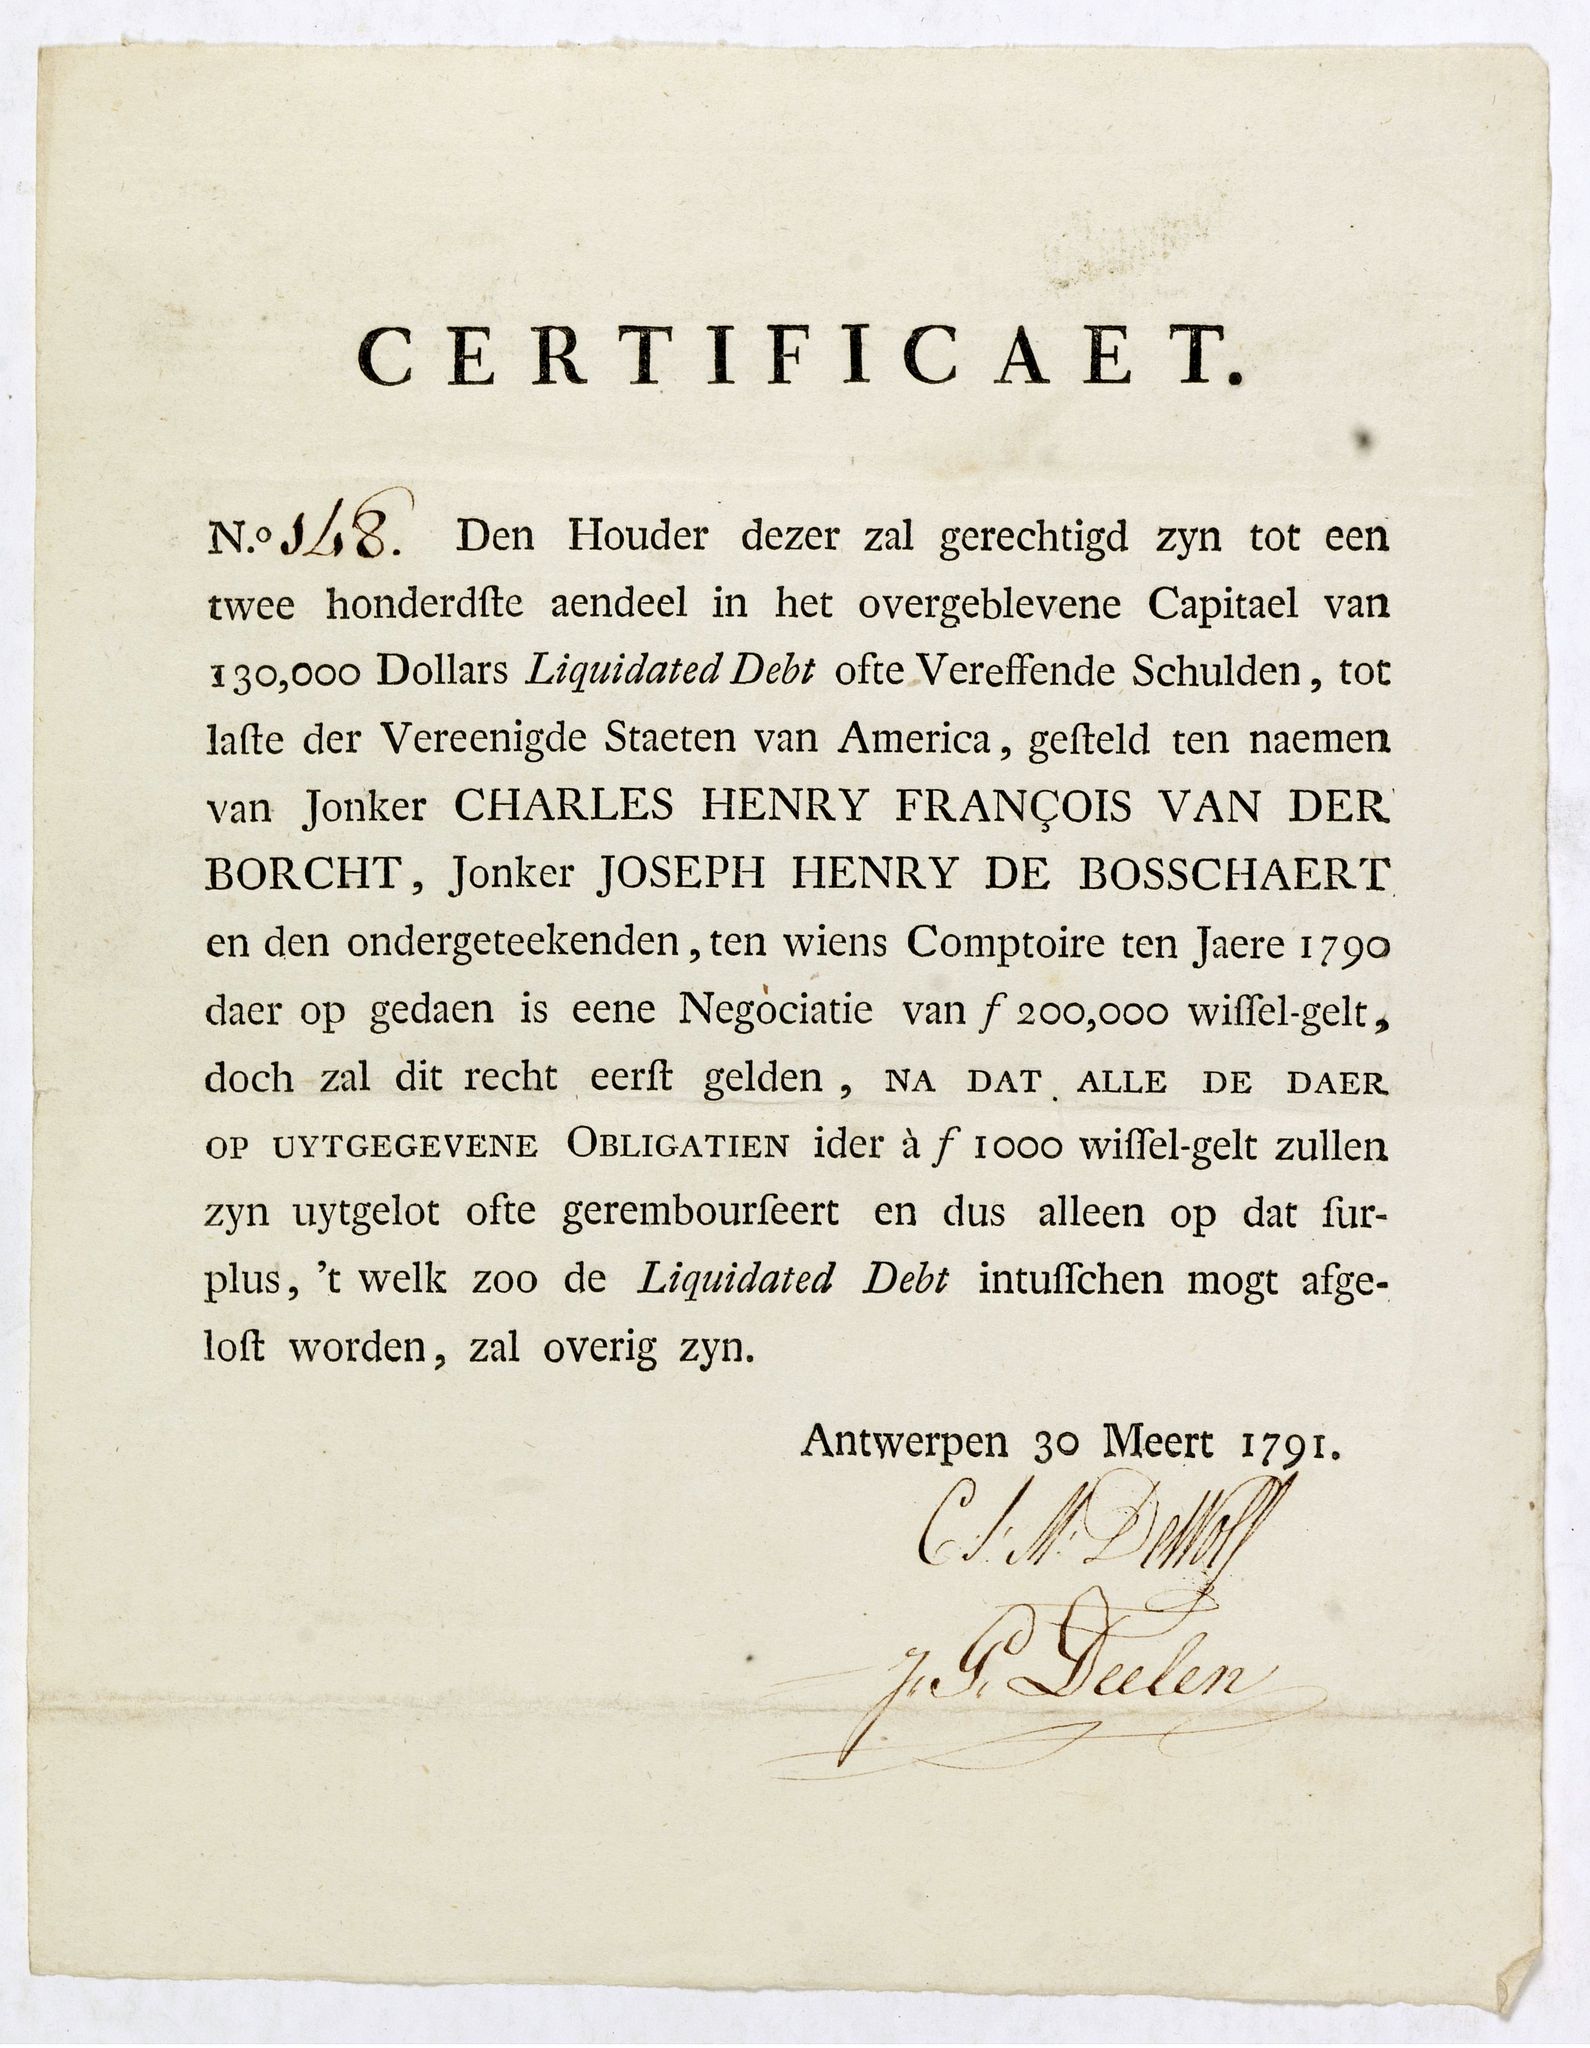 CERTIFICAET.
N.o 148. Den Houder dezer zal gerechtigd zyn tot een
twee honderdſte aendeel in het overgeblevene Capitael van
130,000 Dollars Liquidated Debt ofte Vereffende Schulden, tot
laſte der Vereenigde Staeten van America, geſteld ten naemen
van Jonker CHARLES HENRY FRANÇOIS VAN DER
BORCHT, Jonker JOSEPH HENRY DE BOSSCHAERT
en den ondergeteekenden, ten wiens Comptoire ten Jaere 1790
daer op gedaen is eene Negociatie van f 200,000 wiſſel-gelt,
doch zal dit recht eerſt gelden, NA DAT ALLE DE DAER
OP UYTGEGEVENE OBLIGATIEN ider à f 1000 wiſſel-gelt zullen
zyn uytgelot ofte gerembourſeert en dus alleen op dat ſur-
plus, 't welk zoo de Liquidated Debt intuſſchen mogt afge-
loſt worden, zal overig zyn.
Antwerpen 30 Meert 1791.
C. J. M. DeWolf
J. G. Deelen